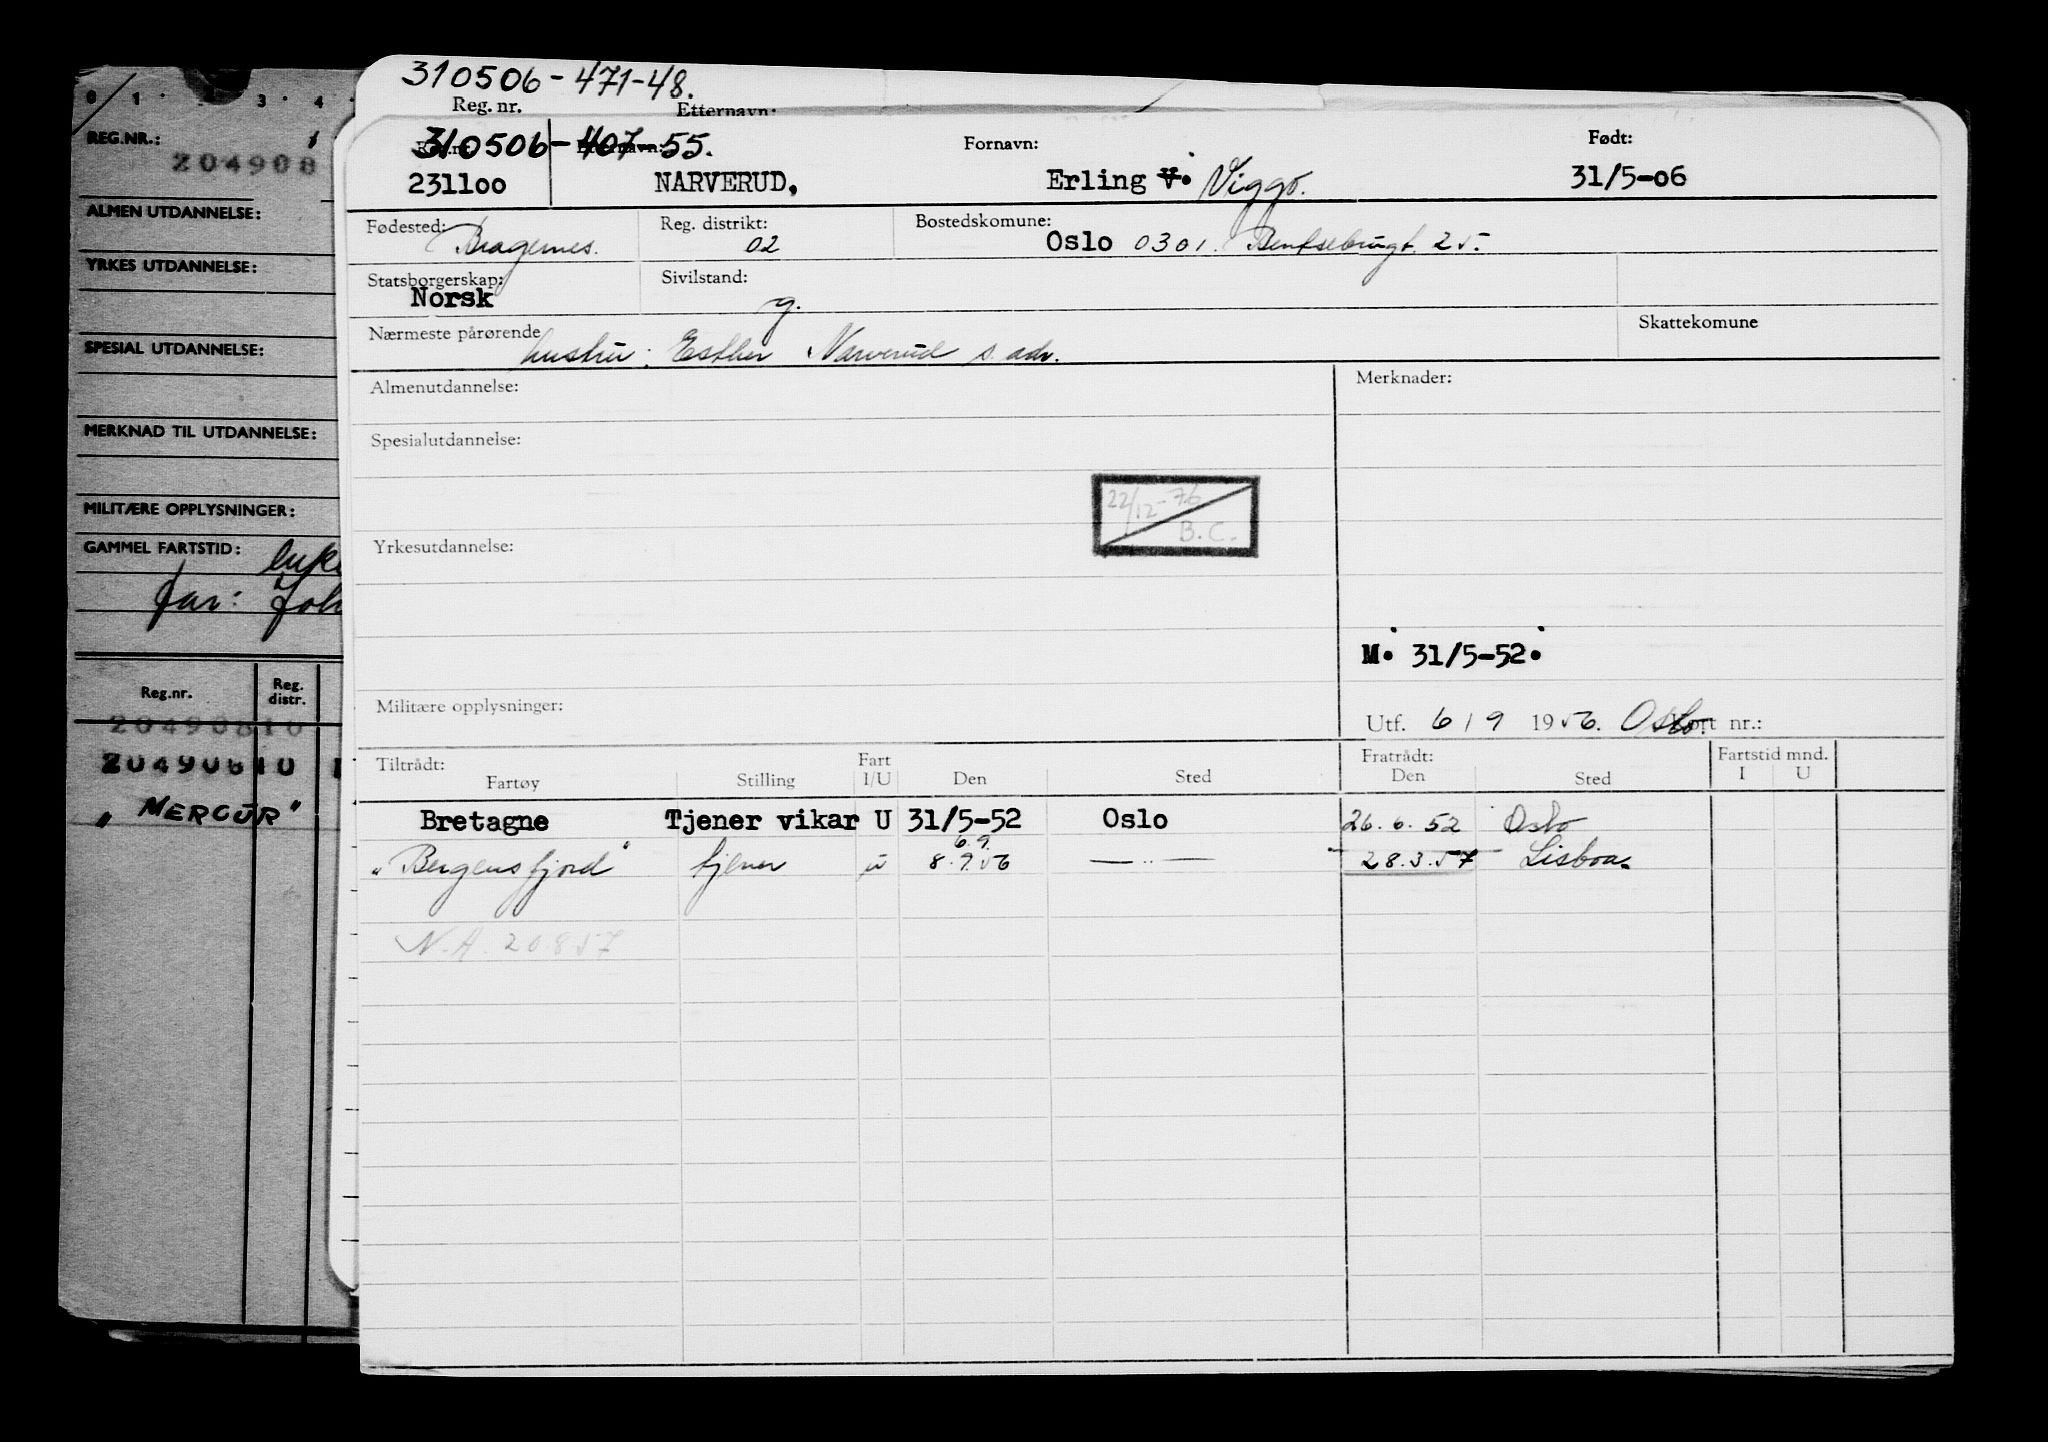 310506-471-48.
Reg. nr. Etternavn:
310506-407-55. Fornavn: Født:
231100 NARVERUD, Erling V. Viggo. 31/5-06
Fødested: Bragernes. Reg. distrikt: 02 Bostedskomune: Oslo 0301. 25.
Statsborgerskap: Norsk Sivilstand: g.
Nærmeste pårørende hustru: Esther Narverud s. adr. Skattekomune
Almenutdannelse: Merknader:
Spesialutdannelse:
22/12-76
B.C.
Yrkesutdannelse:
M. 31/5-52.
Militære opplysninger: Utf. 6/9 1956. Oslo nr.:
Tiltrådt: Fart Fratrådt: Fartstid mnd.
Fartøy Stilling I/U Den Sted Den Sted I U
Bretagne Tjener vikar U 31/5-52 Oslo 26.6.52 Oslo
6.9.
"Bergensfjord" tjener u 8.9.56 — " — 28.3.57 Lisboa.
N.A. 20857
0 1 3 4
REG.NR.: 1
204908
ALMEN UTDANNELSE:
YRKES UTDANNELSE:
SPESIAL UTDANNELSE:
MERKNAD TIL UTDANNELSE:
MILITÆRE OPPLYSNINGER:
GAMMEL FARTSTID:
far: Joh
Reg.nr. Reg. distr.
20490810
20490810
"MERCUR"